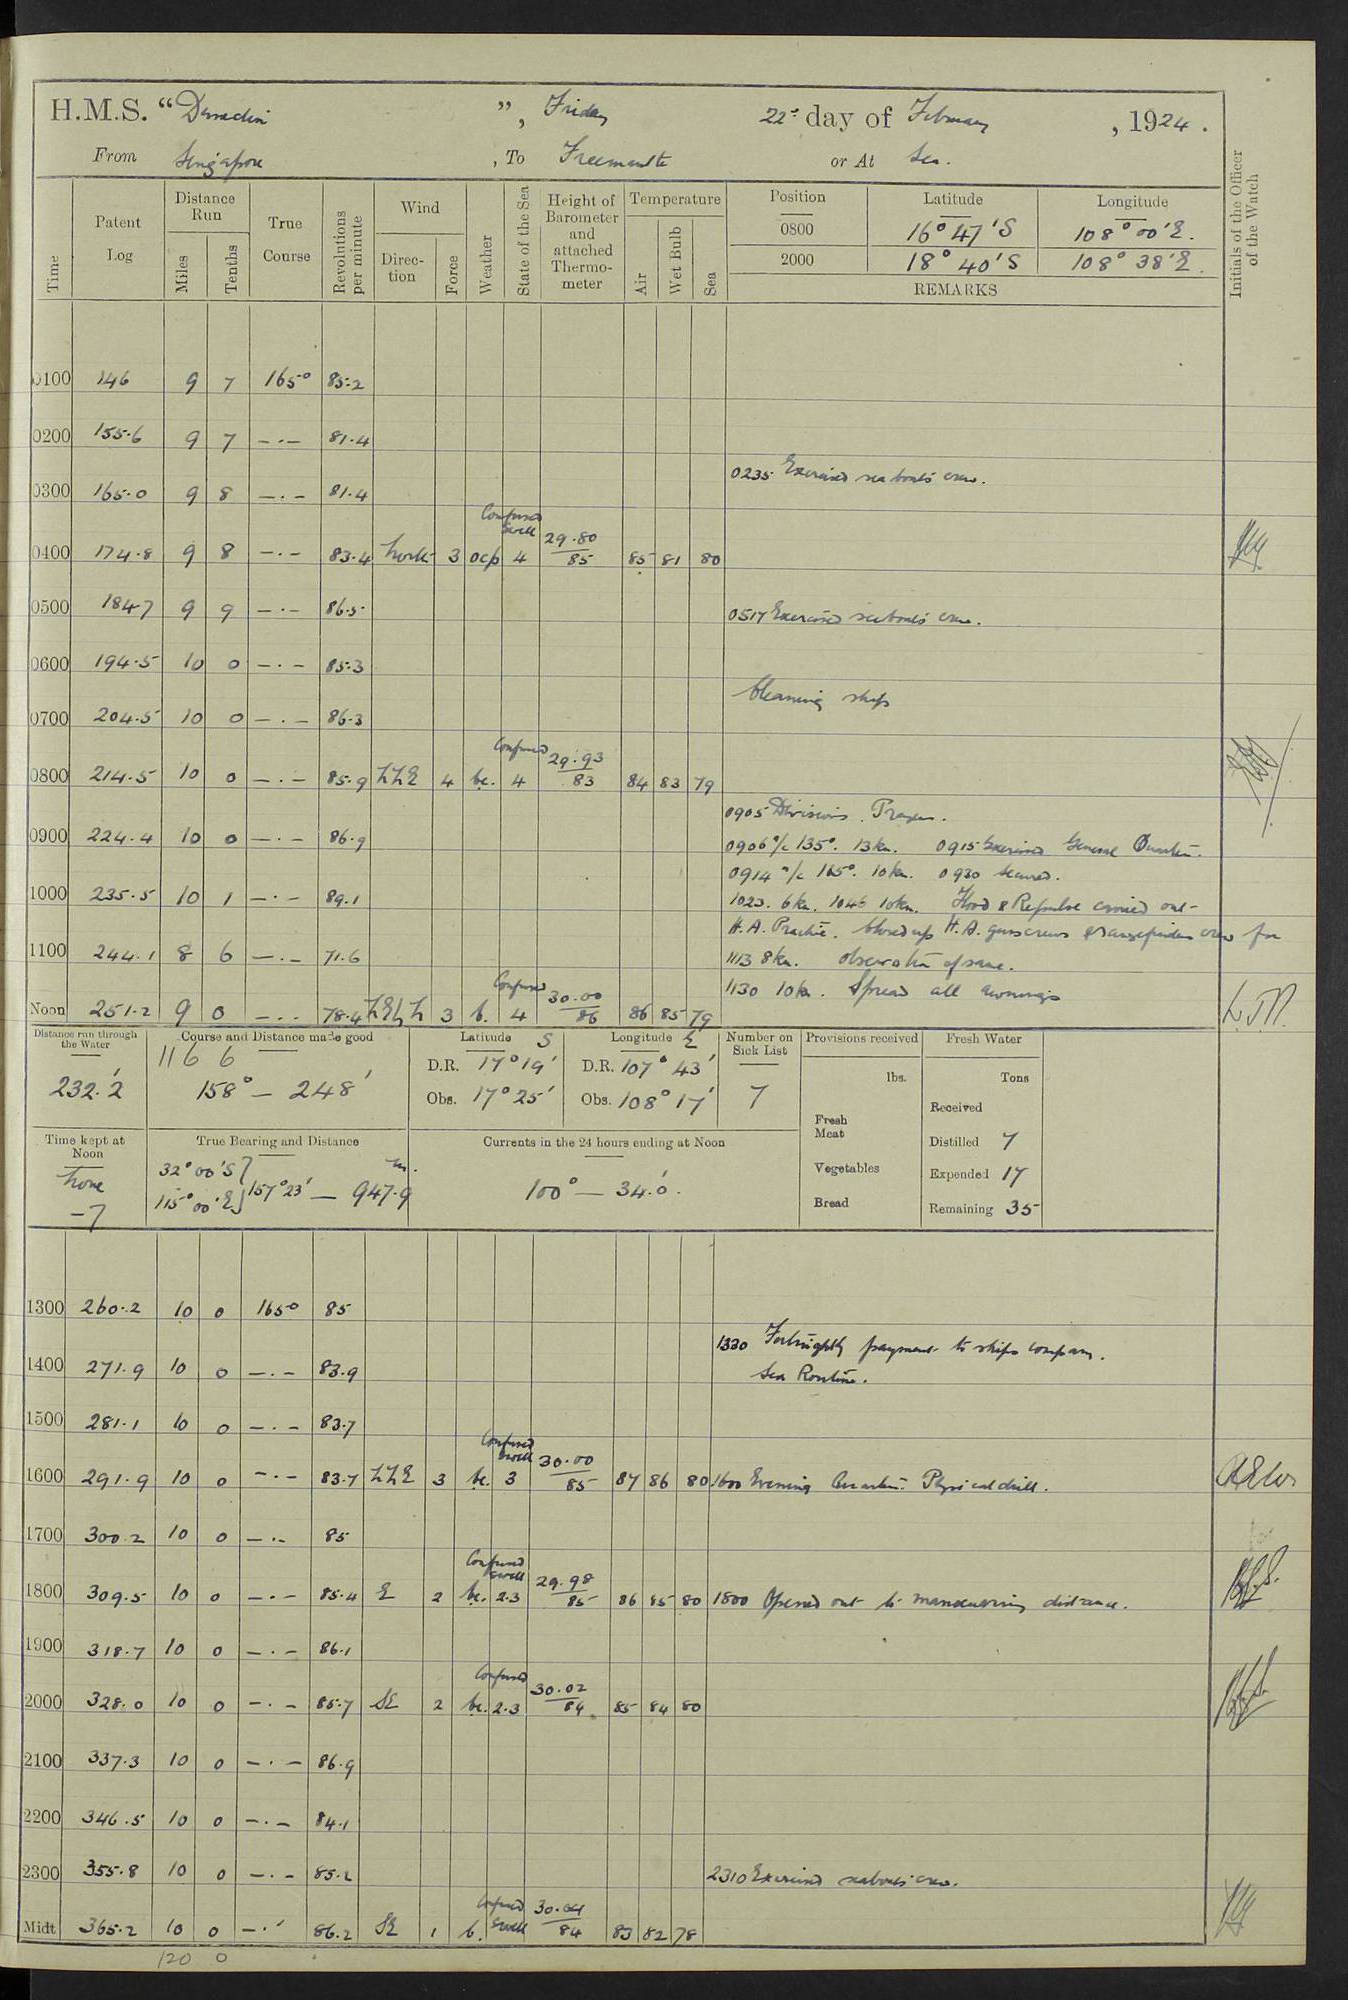 H.M.S. " ", Friday 22nd day of February, 1924.
From Singapore, To Freemantle or At Sea.
Time Patent Log Distance Run Miles Tenths True Course Revolutions per minute Wind Direction Force Weather State of the Sea Height of Barometer and attached Thermometer Temperature Air Wet Bulb Sea Position Latitude Longitude Initials of the Officer of the Watch
0800 16° 47' S 108° 00' E.
2000 18° 40' S 108° 38' E.
REMARKS
0100 146 9 7 165° 85.2
0200 155.6 9 7 –.– 81.4
0235 Exercised sea boats crew.
0300 165.0 9 8 –.– 81.4
0400 174.8 9 8 –.– 83.4 North 3 ocp Confused Swell 4 29.80/85 85 81 80
0500 184.7 9 9 –.– 86.5 0517 Exercised seaboats crew.
0600 194.5 10 0 –.– 85.3
Cleaning ship
0700 204.5 10 0 –.– 86.3
0800 214.5 10 0 –.– 85.9 NNE 4 bc. Confused 4 29.93/83 84 83 79
0905 Divisions. Prayers.
0900 224.4 10 0 –.– 86.9 0906 a/c 135°. 13 kn. 0915 Exercised General Quarters.
0914 a/c 165°. 10 kn. 0930 Secured.
1000 235.5 10 1 –.– 89.1 1023. 6 kn. 1046 10 kn. Hood & Repulse carried out
H.A. Practice. Closed up H.A. guns crews & rangefinder crew for
1100 244.1 8 6 –.– 71.6 1113 8 kn. observation of same.
1130 10 kn. Spread all awnings
Noon 251.2 9 0 –.– 78.4 3 b. Confused 4 30.00/86 86 85 79
Distance run through the Water 232.2'
Course and Distance made good 116 6 158° – 248'
Latitude S D.R. 17° 19' Obs. 17° 25'
Longitude E D.R. 107° 43' Obs. 108° 17'
Number on Sick List 7
Provisions received lbs. Fresh Meat Vegetables Bread
Fresh Water Tons Received Distilled 7 Expended 17 Remaining 35
Time kept at Noon Zone –7
True Bearing and Distance 32° 00' S 115° 00' E } 157° 23' – 947.9 m.
Currents in the 24 hours ending at Noon 100° – 34.0'.
1300 260.2 10 0 165° 85
1330 Fortnightly payment to ships company.
1400 271.9 10 0 –.– 83.9 Sea Routine.
1500 281.1 10 0 –.– 83.7
1600 291.9 10 0 –.– 83.7 NNE 3 bc. Confused Swell 3 30.00/85 87 86 80 1600 Evening Quarters. Physical drill.
1700 300.2 10 0 –.– 85
1800 309.5 10 0 –.– 85.4 E 2 bc. Confused Swell 2.3 29.98/85 86 85 80 1800 Opened out to manoeuvring distance.
1900 318.7 10 0 –.– 86.1
2000 328.0 10 0 –.– 85.7 SE 2 bc. Confused 2.3 30.02/84 85 84 80
2100 337.3 10 0 –.– 86.9
2200 346.5 10 0 –.– 84.1
2300 355.8 10 0 –.– 85.2 2310 Exercised seaboats crew.
Midt 365.2 10 0 –.– 86.2 SE 1 b. Confused Swell 30.04/84 83 82 78
120 0